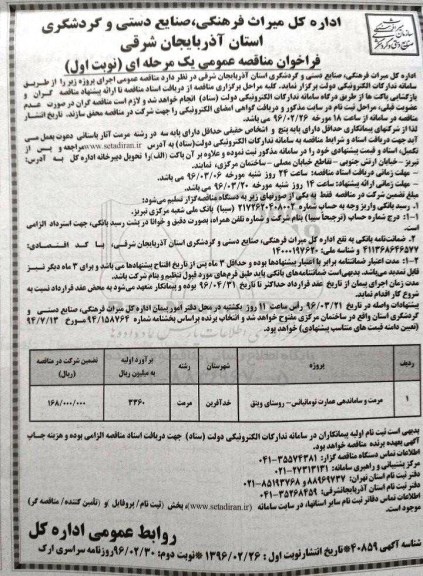 اداره کل میراث فرهنگی، صنایع دستی و گردشگری
استان آذربایجان شرقی
فراخوان مناقصه عمومی یک مرحله ای (نوبت اول)
اداره کل میراث فرهنگی، صنایع دستی و گردشگری استان آذربایجان شرقی در نظر دارد مناقصه عمومی اجرای پروژه زیر را از طریق
سامانه تدارکات الکترونیکی دولت برگزار نماید. کلیه مراحل برگزاری مناقصه از دریافت اسناد مناقصه تا ارائه پیشنهاد مناقصه گران و
بازگشایی پاکت ها از طریق درگاه سامانه تدارکات الکترونیکی دولت (ستاد) انجام خواهد شد و لازم است مناقصه گران در صورت عدم
عضویت قبلی، مراحل ثبت نام در سایت مذکور و دریافت گواهی امضای الکترونیکی را جهت شرکت در مناقصه محقق سازند. تاریخ انتشار
مناقصه در سامانه از ۱۸ مورخه ۹۶/۰۲/۲۶ می باشد.
لذا از شرکتهای پیمانکاری حداقل دارای پایه پنج و اشخاص حقیقی حداقل دارای پایه سه در رشته مرمت آثار باستانی دعوت بعمل می
آید جهت دریافت اسناد و شرایط مناقصه به سامانه تدارکات الکترونیکی دولت(ستاد) به آدرس www.setadiran.ir مراجعه و پس از
تکمیل، اسناد و قیمت پیشنهادی خود را در سامانه مذکور ثبت نموده و علاوه بر آن پاکت (الف) را تحویل دبیرخانه اداره کل به آدرس:
تبریز - خیابان ارتش جنوبی - تقاطع خیابان مصلی - ساختمان مرکزی، نمایند.
- مهلت زمانی دریافت اسناد مناقصه: ساعت ۲۴ روز شنبه مورخه ۹۶/۰۳/۰۶ می باشد
- مهلت زمانی ارائه پیشنهاد: ساعت ۱۴ روز شنبه مورخه ۹۶/۰۳/۲۰ می باشد
مبلغ تضمین شرکت در مناقصه فقط به یکی از صورتهای زیر به دستگاه مناقصه گزار تسلیم می شود:
۱. رسید بانکی واریز وجه به حساب شماره ۲۱۷۲۶۲۰۲۰۸۰۰۲ (سیبا) بانک ملی شعبه مرکزی تبریز.
۱-۱: درج شماره حساب (ترجیحاً سیبا) بنام شرکت و شماره تلفن همراه، بصورت دقیق و خوانا در پشت رسید بانکی، جهت استرداد الزامی
است.
۲. ضمانت نامه بانکی به نفع اداره کل میراث فرهنگی، صنایع دستی و گردشگری استان آذربایجان شرقی، با کد اقتصادی:
۴۱۱۳۶۸۶۴۶۵۷۷ و شناسه ملی: ۱۴۰۰۰۱۹۷۶۲۰
۲-۱: مدت اعتبار ضمانتنامه برابر با اعتبار پیشنهادها بوده و حداقل ۳ ماه پس از تاریخ افتتاح پیشنهادها می باشد و برای ۳ ماه دیگر نیز
قابل تمدید می باشد. بدیهی است ضمانتنامه های بانکی باید طبق فرم های مورد قبول تنظیم و بنام شرکت باشد.
مدت زمان اجرای پیمان از تاریخ عقد قرارداد حداکثر تا تاریخ ۹۶/۰۴/۳۱ بوده و پیمانکار متعهد می شود به محض عقد قرارداد نسبت به
شروع کار اقدام نماید.
پیشنهادات واصله در تاریخ ۹۶/۰۳/۲۱ رأس ساعت ۱۱ روز یکشنبه در محل دفتر امور پیمان اداره کل میراث فرهنگی، صنایع دستی و
گردشگری استان واقع در ساختمان مرکزی مفتوح خواهد شد و انتخاب برنده بر اساس بخشنامه شماره ۹۴/۱۵۸۷۶۴ مورخ ۹۴/۷/۱۳
(تعیین دامنه قیمت های متناسب پیشنهادی) خواهد بود.
ردیف پروژه شهرستان رشته برآورد اولیه به میلیون ریال تضمین شرکت در مناقصه (ریال)
۱ مرمت و ساماندهی عمارت تومانیانس - روستای وینق خدآفرین مرمت ۳۳۶۰ ۱۶۸/۰۰۰/۰۰۰
بدیهی است ثبت نام اولیه پیمانکاران در سامانه تدارکات الکترونیکی دولت (ستاد) جهت دریافت اسناد مناقصه الزامی بوده و هزینه چاپ
آگهی بعهده برنده مناقصه خواهد بود.
اطلاعات تماس دستگاه مناقصه گزار: ۳۵۵۷۴۳۸۱-۰۴۱
مرکز پشتیبانی و راهبری سامانه: ۲۷۳۱۳۱۳۱-۰۲۱
دفتر ثبت نام استان تهران: ۸۸۹۶۹۷۳۷ و ۸۵۱۹۳۷۶۸-۰۲۱
دفتر ثبت نام استان آذربایجانشرقی: ۳۵۲۶۸۲۵۹-۰۴۱
اطلاعات تماس دفاتر ثبت نام سایر استانها، در سایت سامانه (www.setadiran.ir)، بخش (ثبت نام / پروفایل) و (تأمین کننده/ مناقصه گر)
موجود است.
روابط عمومی اداره کل
شناسه آگهی ۴۰۸۵۹*تاریخ انتشار نوبت اول : ۱۳۹۶/۰۲/۲۶ *نوبت دوم: ۹۶/۰۲/۳۰ روزنامه سراسری ارک